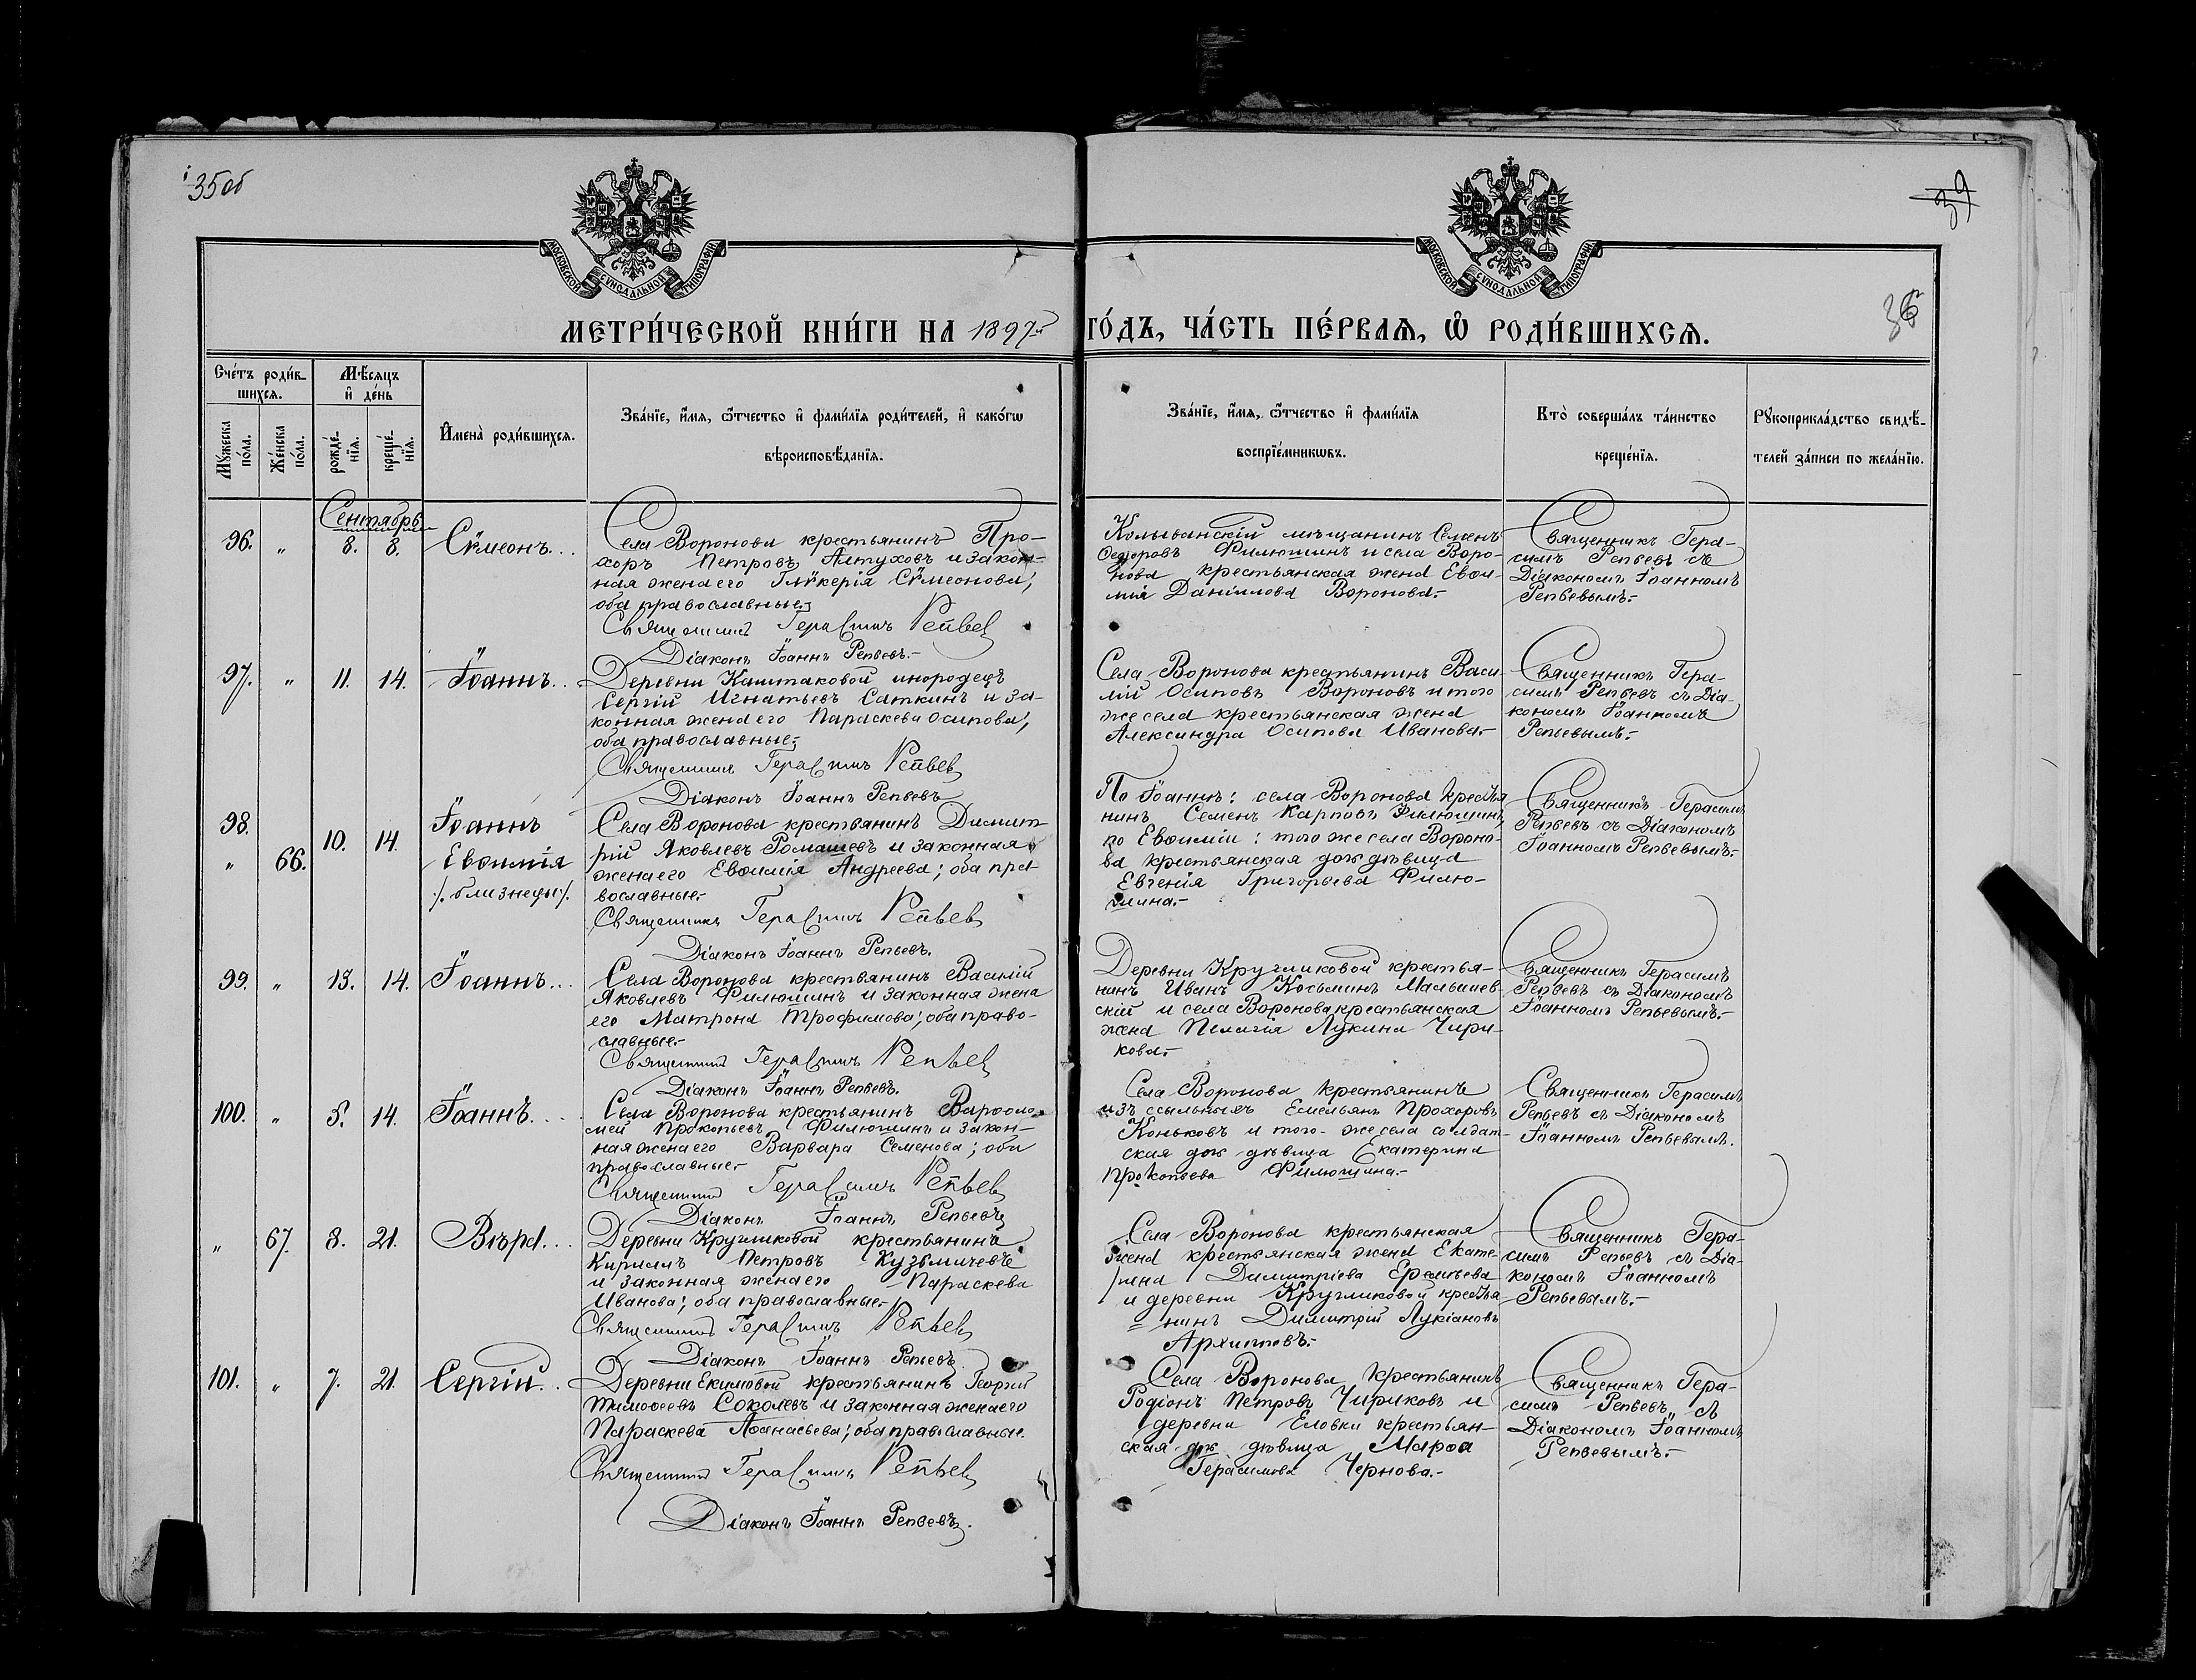 35об
39
36
МОСКОВСКОЙ СѴНОДАЛЬНОЙ ТИПОГРАФІИ
МОСКОВСКОЙ СѴНОДАЛЬНОЙ ТИПОГРАФІИ
МЕТРИ́ЧЕСКОЙ КНИ́ГИ НА 1897й ГО́ДЪ, ЧА́СТЬ ПЕ́РВАѦ, Ѡ҆ РОДИ́ВШИХСѦ.
Сче́тъ роди́в-
шихсѧ.
Мꙋ́жеска по́ла.
Же́нска по́ла.
Мѣ́сѧцъ
и҆ де́нь
рожде́-
нїѧ.
креще́-
нїѧ.
И҆мена̀ роди́вшихсѧ.
Зва́нїе, и҆́мѧ, ѻ҆́тчество и҆ фами́лїѧ роди́телей, и҆ како́гѡ
вѣроисповѣ́данїѧ.
Зва́нїе, и҆́мѧ, ѻ҆́тчество и҆ фами́лїѧ
воспрїе́мникѡвъ.
Кто̀ соверша́лъ та́инство
креще́нїѧ.
Рꙋкоприкла́дство свидѣ́-
телей за́писи по жела́нїю.
Сентябрь
96. „ 8. 8. Сѵмеонъ...
Села Воронова крестьянинъ Про-
хоръ Петровъ Алтуховъ и закон-
ная жена его Глѵкерія Сѵмеонова;
оба православные.-
Священникъ Герасимъ Репьев
Діаконъ Іоаннъ Репьевъ.-
Колыванскій мѣщанинъ Семенъ
Федоровъ Филюшинъ и села Воро-
нова крестьянская жена Евѳи-
мія Даніилова Воронова.-
Священникъ Гера-
симъ Репьевъ съ
Діакономъ Іоанномъ
Репьевымъ.-
97. „ 11. 14. Іоаннъ...
Деревни Каштаковой инородецъ
Сергій Игнатьевъ Саткинъ и за-
конная жена его Параскева Осипова;
оба православные.-
Священникъ Герасимъ Репьев
Діаконъ Іоаннъ Репьевъ
Села Воронова крестьянинъ Васи-
лій Осиповъ Вороновъ и того
же села крестьянская жена
Александра Осипова Иванова.-
Священникъ Гера-
симъ Репьевъ съ Діа-
кономъ Іоанномъ
Репьевымъ.-
98. 10. 14. Іоаннъ
„ 66. Евѳимія
/. близнецы ./
Села Воронова крестьянинъ Димит
рій Яковлевъ Ромашевъ и законная
жена его Евѳимія Андреева; оба пра-
вославные.-
Священникъ Герасимъ Репьев
Діаконъ Іоаннъ Репьевъ.
По Іоаннѣ: села Воронова крестья
нинъ Семенъ Карповъ Филюшинъ
по Евѳиміи: того же села Вороно-
ва крестьянская дочь дѣвица
Евгенія Григорьева Филю-
шина.-
Священникъ Герасимъ
Репьевъ съ Діакономъ
Іоанномъ Репьевымъ.-
99. „ 13. 14. Іоаннъ...
Села Воронова крестьянинъ Василій
Яковлевъ Филюшинъ и законная жена
его Матрона Трофимова; оба право-
славные.-
Священникъ Герасимъ Репьев
Діаконъ Іоаннъ Репьевъ.
Деревни Кругликовой крестья-
нинъ Иванъ Косьминъ Малышев-
скій и села Воронова крестьянская
жена Пелагія Лукина Чири-
кова.-
Священникъ Герасимъ
Репьевъ съ Діакономъ
Іоанномъ Репьевымъ.-
100. „ 5. 14. Іоаннъ...
Села Воронова крестьянинъ Варѳоло-
мей Прокопьевъ Филюшинъ и закон-
ная жена его Варвара Семенова; оба
православные.-
Священникъ Герасимъ Репьев
Діаконъ Іоаннъ Репьевъ
Села Воронова крестьянинъ
изъ ссыльныхъ Емельянъ Прохоровъ
Коньковъ и того-же села солдат-
ская дочь дѣвица Екатерина
Прокопьева Филюшина.-
Священникъ Герасимъ
Репьевъ съ Діакономъ
Іоанномъ Репьевымъ.
„ 67. 8. 21. Вѣра...
Деревни Кругликовой крестьянинъ
Кириллъ Петровъ Кузьмичевъ
и законная жена его Параскева
Иванова; оба православные.-
Священникъ Герасимъ Репьев
Діаконъ Іоаннъ Репьевъ
Села Воронова крестьянская
жена крестьянская жена Екате-
рина Димитріева Еремѣева
и деревни Кругликовой крестья
нинъ Димитрій Лукіановъ
Архиповъ.-
Священникъ Гера-
симъ Репьевъ съ Діа-
кономъ Іоанномъ
Репьевымъ.-
101. „ 7. 21. Сергій...
Деревни Екимовой крестьянинъ Георгій
Тимоѳеевъ Соколевъ и законная жена его
Параскева Аѳанасьева; оба православные.
Священникъ Герасимъ Репьев
Діаконъ Іоаннъ Репьевъ.
Села Воронова крестьянинъ
Родіонъ Петровъ Чириковъ и
деревни Еловки крестьян-
ская дочь дѣвица Марѳа
Герасимова Чернова.-
Священникъ Гера-
симъ Репьевъ съ
Діакономъ Іоанномъ
Репьевымъ.-